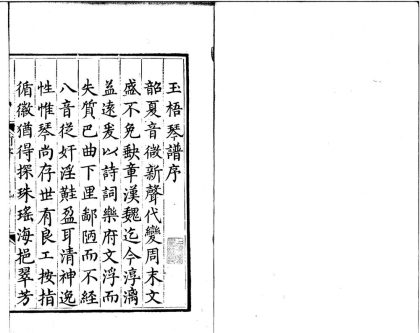 玉梧琴譜序
韶夏音微新聲代變周末文
盛不免歉章漢魏迄今淳漓
益遠爰以詩詞樂府文浮而
失質巴曲下里鄙陋而不經
八音從奸淫鼃盈耳清神逸
性惟琴尚存世有良工按指
循徽猶得探珠瑤海挹翠芳